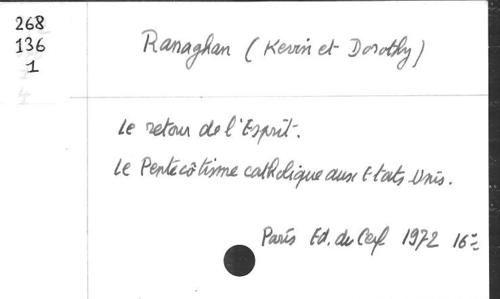 268
136
1
Ranaghan (Kevin et Dorothy)
Le retour de l'Esprit.
Le Pentecôtisme catholique aux Etats Unis.
Paris Ed. du Cerf 1972 16°